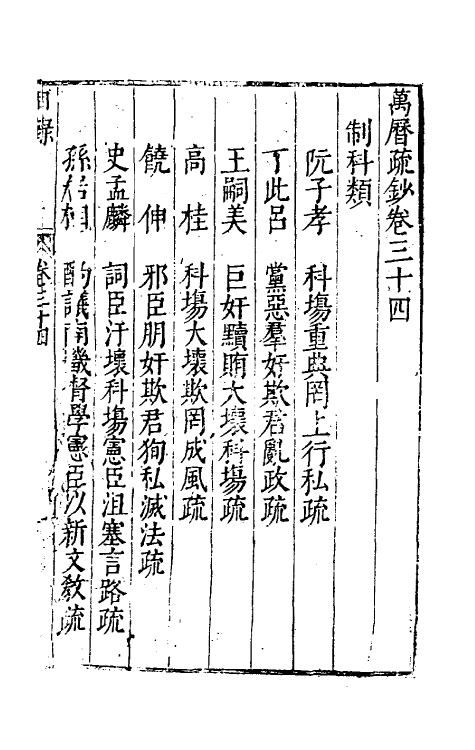 萬曆疏鈔卷三十四
制科類
阮子孝 科塲重典罔上行私疏
丁此呂 黨惡羣奸欺君亂政疏
王嗣美 巨奸黷賄大壞科塲疏
高桂 科塲大壞欺罔成風疏
饒伸 邪臣朋奸欺君狥私滅法疏
史孟麟 詞臣汙壞科塲憲臣沮塞言路疏
孫居相 酌議南畿督學憲臣以新文敎疏
目錄 卷三十四